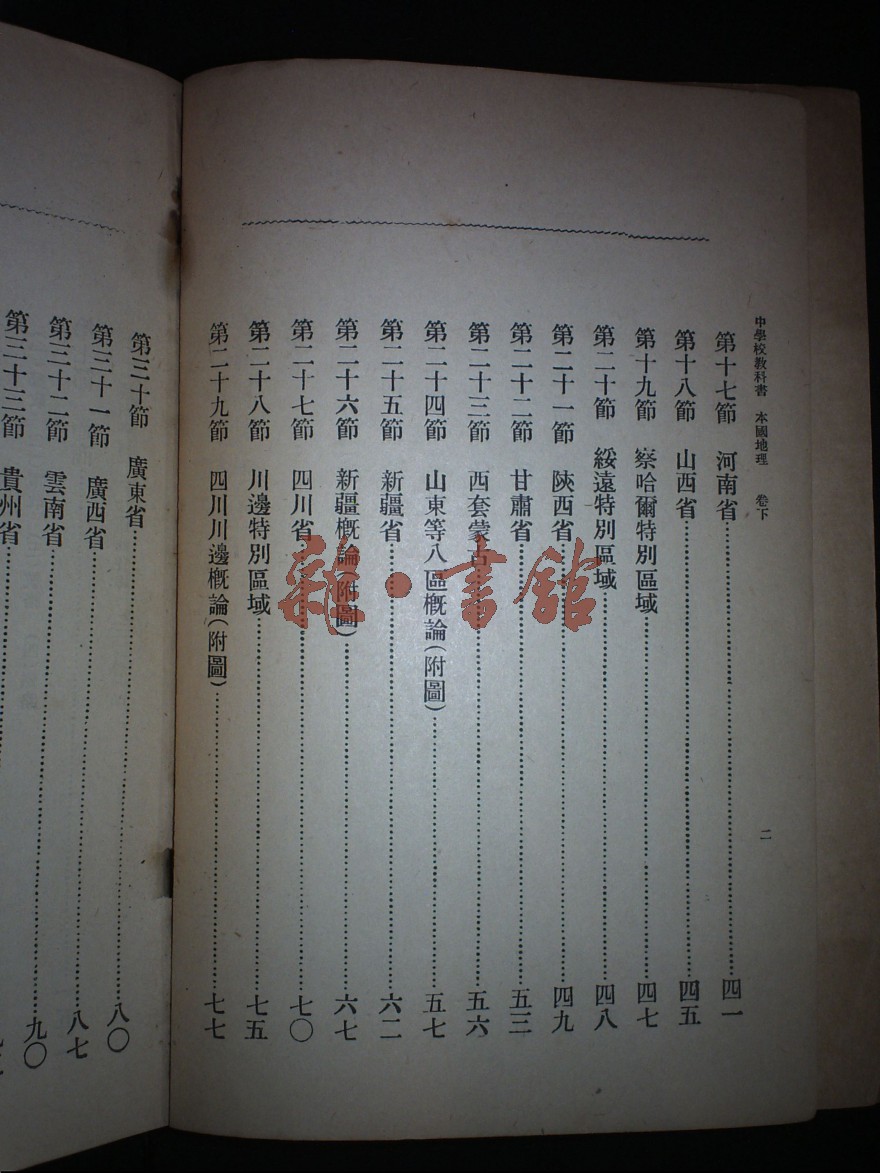 中學校教科書 本國地理 卷下 二
第十七節 河南省⋯⋯四一
第十八節 山西省⋯⋯四五
第十九節 察哈爾特別區域⋯⋯四七
第二十節 綏遠特別區域⋯⋯四八
第二十一節 陝西省⋯⋯四九
第二十二節 甘肅省⋯⋯五三
第二十三節 西套蒙古⋯⋯五六
第二十四節 山東等八區概論(附圖)⋯⋯五七
第二十五節 新疆省⋯⋯六二
第二十六節 新疆概論(附圖)⋯⋯六七
第二十七節 四川省⋯⋯七〇
第二十八節 川邊特別區域⋯⋯七五
第二十九節 四川川邊概論(附圖)⋯⋯七七
第三十節 廣東省⋯⋯八〇
第三十一節 廣西省⋯⋯八七
第三十二節 雲南省⋯⋯九〇
第三十三節 貴州省⋯⋯
雜·書館